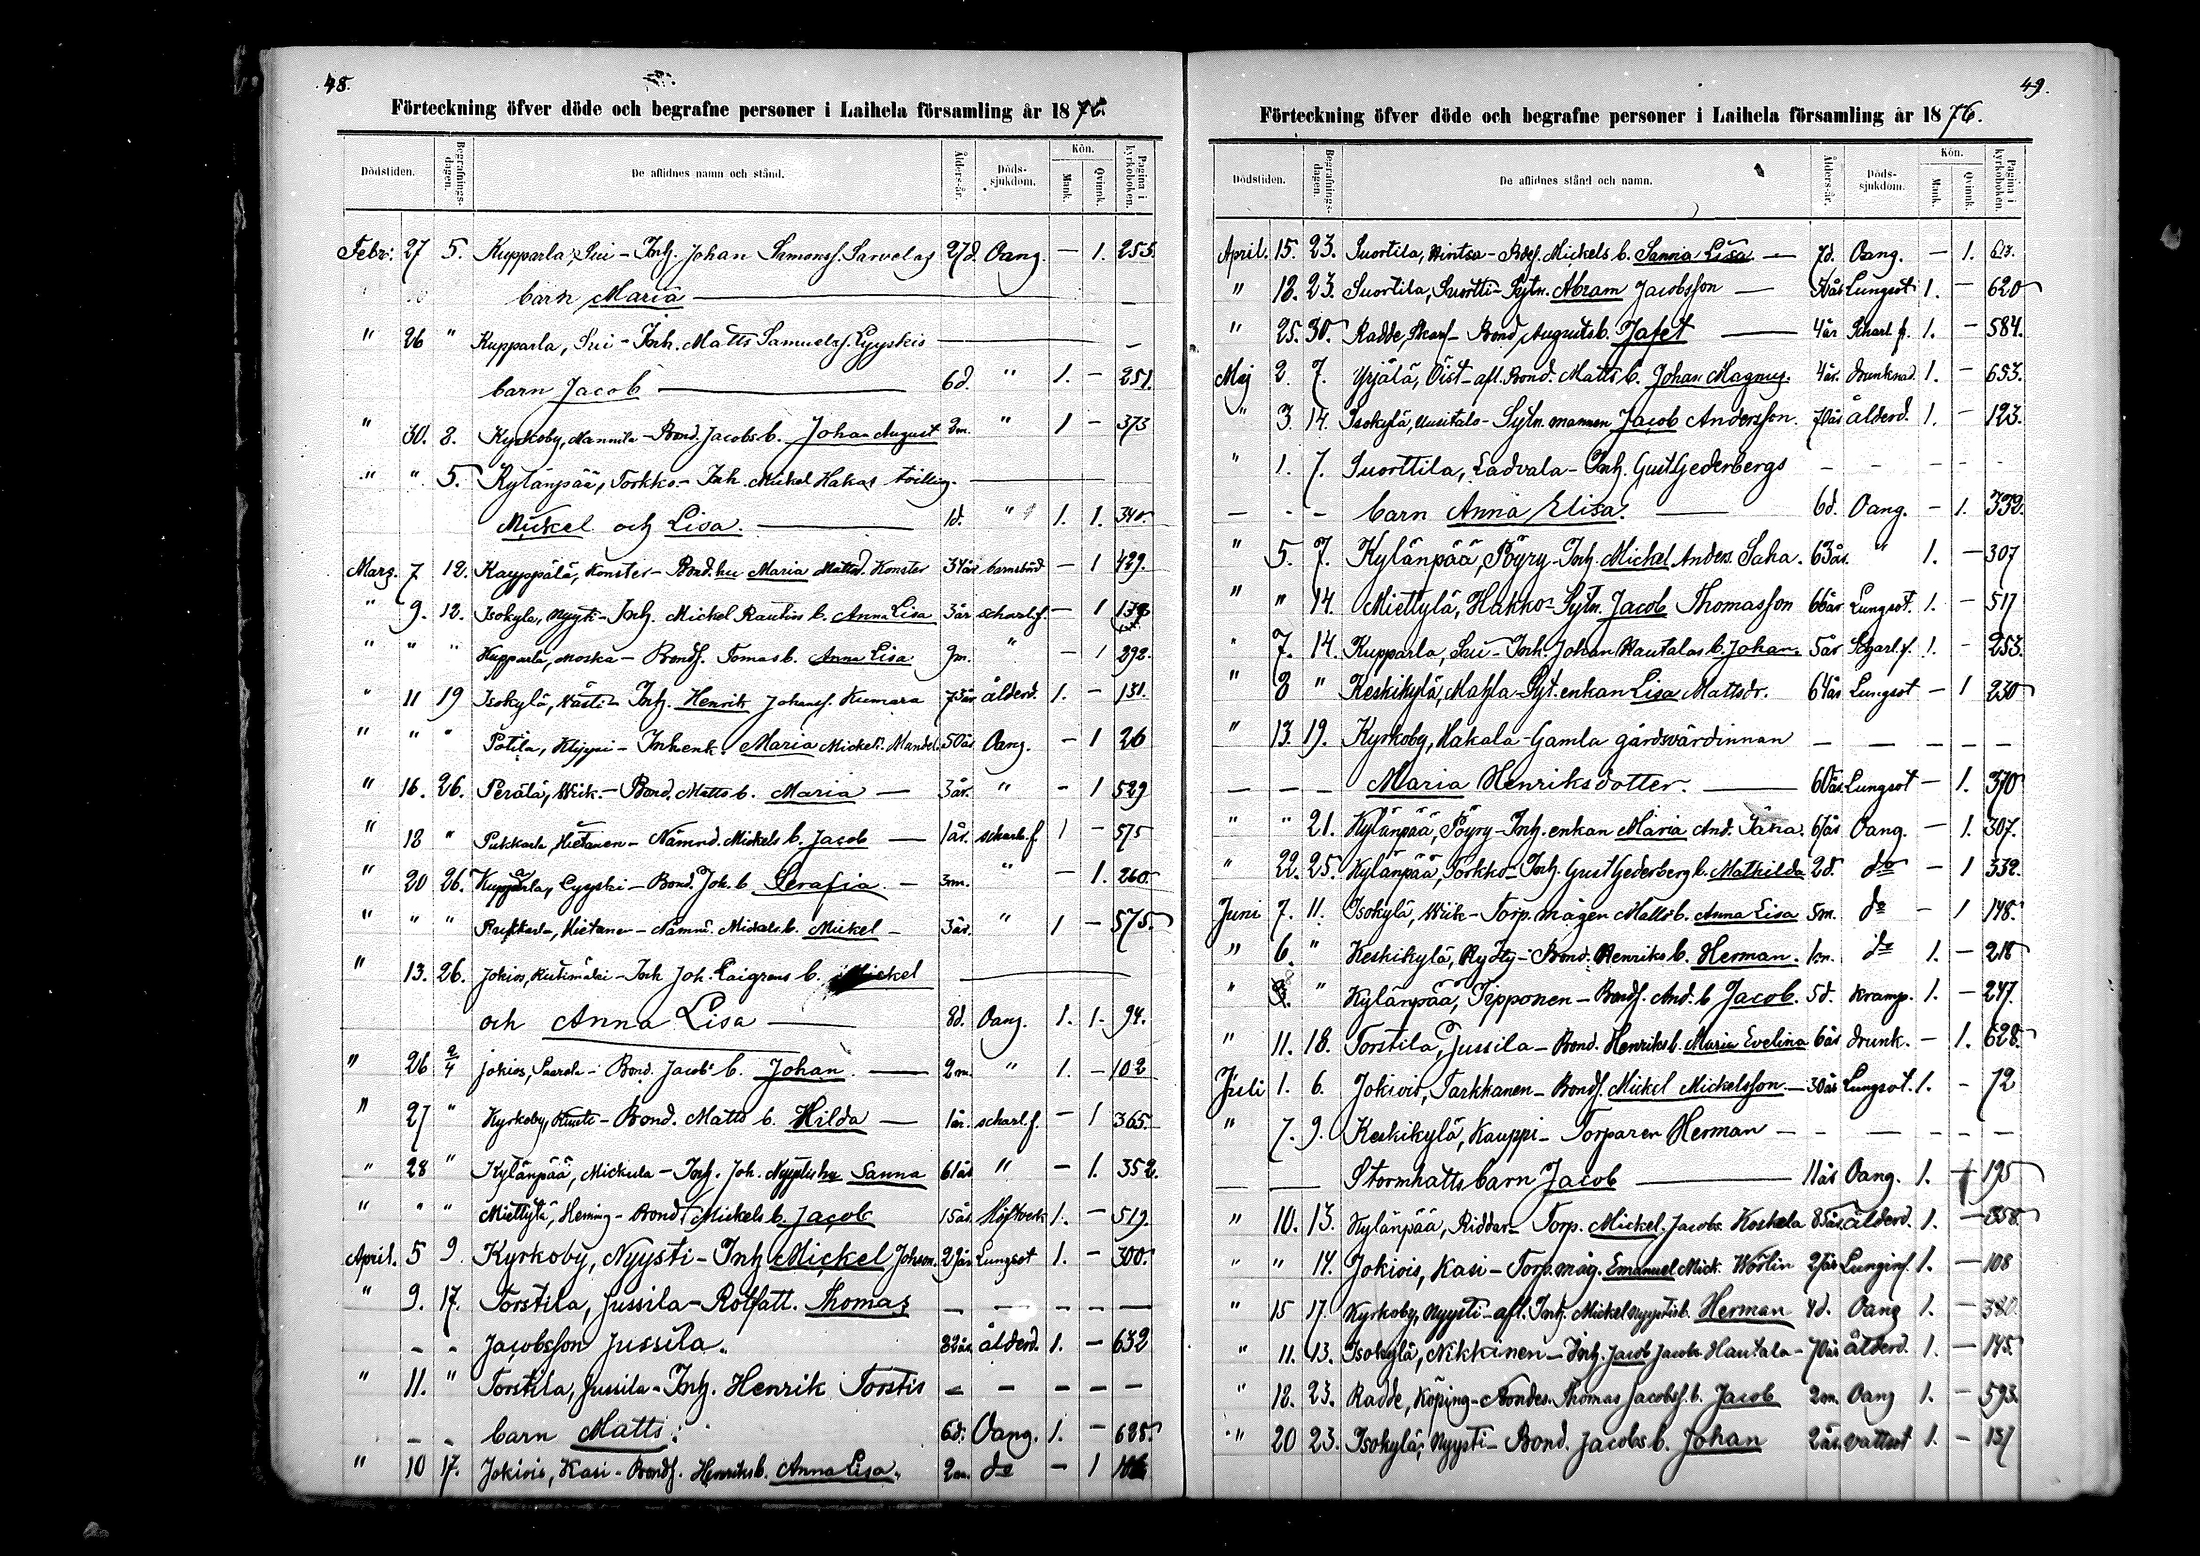 48.
Förteckning öfver döde och begrafne personer i Laihela församling år 1876.
Dödstiden. Begrafningsdagen. De aflidnes namn och stånd. Ålders-år. Dödssjukdom. Kön. Mank. Qvinnk. Pagina i kyrkoboken.
Febr. 27 5. Kupparla, Sui - Inh. Johan Simonss. Sarvelas 27d. Oang. — 1. 255.
barn Maria —
" 26 " Kupparla, Sui - Inh. Matts Samuelss. Lyyskis —
barn Jacob — 6d. " 1. — 251.
" 30. 8. Kyrkoby, Mannila - Bond. Jacobs b. Johan August 2m. " 1 — 373
" " 5. Kylänpää, Torkko - Inh. Mickel Hakas tvilling. —
Mickel och Lisa. — 1d. " 1. 1. 340.
Mars. 7 12. Kauppälä, Konster - Bond. hu Maria Mattsd. Konster 34år barnsbörd — 1 429.
" 9. 12. Isokyla, Nyyti - Inh. Mickel Rautios b. Anna Lisa 3år scharl.f. — 1
" " " Kupparla, Moska - Bonds. Tomas b. Anna Lisa 9m. " — 1 292.
" 11 19 Isokylä, Wästi - Inh. Henrik Johanss. Kumara 73år ålderd. 1. — 131.
" " " Potila, Klyppi - Inh enk. Maria Mickels. Mandel. 50år Oang. — 1 26
" 16. 26. Perälä, Wiik. - Bond. Matts b. Maria — 3år. " — 1 529
" 18 " Pukkarla, Hietanen - Nämnd. Mickels b. Jacob — 1år. scharl.f 1 — 575
" 20 26. Kupparla, Lyyski - Bond. Joh. b. Serafia. — 3m. " — 1. 260.
" " " Pukkarla, Hietanen - Nämnd. Mickels b. Mickel — 3år. " 1 — 575.
" 13. 26. Jokios, Kutimäki - Inh Joh. Laigrens b. Mickel —
och Anna Lisa — 8d. Oang. 1. 1. 94.
" 26 2/4 Jokios, Saarela - Bond. Jacobs b. Johan. — 2m. " 1. — 102
" 27 " Kyrkoby, - Bond. Matts b. Hilda — 1år. scharl.f. — 1 365.
" 28 " Kylänpää, Mickula - Inh. Joh. hu Sanna 61år " — 1. 352.
" " " Miettylä, Heming - Bond Mickels b. Jacob 15år. Höftverk 1. — 519.
April. 5 9. Kyrkoby, Nyysti - Inh Mickel Johsson. 29år Lungsot 1. — 300.
" 9. 17. Torstila, Jussila - Rotfatt. Thomas — — — — —
- - Jacobsson Jussila. 82år. ålderd. 1. — 632
" 11. " Torstila, Jussila - Inh. Henrik Torstis — — — — —
- - barn Matts. 6d. Oang. 1. — 625.
" 10 17. Jokiois, Kasi - Bonds. Henriks b. Anna Lisa. 2m. do — 1
49.
Förteckning öfver döde och begrafne personer i Laihela församling år 1876.
Dödstiden. Begrafningsdagen. De aflidnes stånd och namn. Ålders-år. Dödssjukdom. Kön. Mank. Qvinnk. Pagina i kyrkoboken.
April. 15. 23. Suortila, Hintsa - Mickels b. Sanna Lisa — 7d. Oang. — 1.
" 18. 23. Suortila, Suortti - Sytn. Abram Jacobsson — Lungsot 1. — 620
" 25. 30. Radde, Skarf - Bond Augusts b. Jafet — 4år Scharl.f. 1. — 584.
Maj 2. 7. Yrjälä, Öist - afl. Bond. Matts b. Johan Magnus. 4år. drunknad. 1. — 653.
" 3. 14. Isokylä, Uusitalo - Sytn. mannen Jacob Andersson. 70år ålderd. 1. — 123.
" 1. 7. Suorttila, Ladvala - Inh. Gust Gederbergs — — — —
— - - barn Anna Elisa. — 6d. Oang. — 1. 332.
" 5. 7. Kylänpää, Pöyry - Inh. Mickel Anders. Saha. 63år. " 1. — 307
" " 14. Miettylä, Hakko - Sytn. Jacob Thomasson 66år Lungsot. 1. — 517
" 7. 14. Kupparla, Sui - Inh. Johan Rautalas b. Johan. 5år Scharl.f. 1. — 253.
" 8 " Keskikylä, Mahla - Syt. enkan Lisa Mattsdr. 64år Lungsot — 1 230
" 13. 19. Kyrkoby, Hakala - Gamla gårdsvärdinnan — — — — —
— — — Maria Henriksdotter. — 60år Lungsot — 1. 370
" " 21. Kylänpää, Pöyry - Inh. enkan Maria And. Saha. 61år Oang. — 1. 307.
" 22. 25. Kylänpää, Torkko - Inh. Gust Gederberg b. Mathilda 2d. do — 1 332.
Juni 7. 11. Isokylä, Wiik - Torp. mågen Matts b. Anna Lisa 5m. do — 1 148.
" 6. " Keskikylä, Rydty - Bond. Henriks b. Herman. 1m. do 1. — 218
" 9. " Kylänpää, Tepponen - Bonds. And. b Jacob. 5d. kramp. 1. — 247.
" 11. 18. Torstila, Jussila - Bond. Henriks b. Maria Evelina 6år drunk. — 1. 628.
Juli 1. 6. Jokiois, Tarkkanen - Bonds. Mickel Mickelsson. — 30år Lungsot. 1. — 72
" 7. 9. Keskikylä, Kauppi - Torparen Herman — — — — — —
— — Stormhatts barn Jacob — 11år Oang. 1. — 195
" 10. 13. Kylänpää, Riddar - Torp. Mickel. Jacobs. Koskela 85år. ålderd. 1. — 358.
" " 14. Jokiois, Kasi - Torp. måg. Emanuel Mick. Wörlin 27år Lunginf. 1. — 108
" 15 17. Kyrkoby, Nyysti - afl. Inh. Mickel Nyystis b. Herman 4d. Oang 1. — 380.
" 11. 13. Isokylä, Nikkinen - Inh. Jacob Jacobs. Hautala - 70år ålderd. 1. — 145.
" 18. 23. Radde, Köping - Thomas Jacobss. b. Jacob 2m. Oang 1. — 593.
" 20 23. Isokylä, Nyysti - Bond. Jacobs b. Johan 2år. vattsot 1. — 137